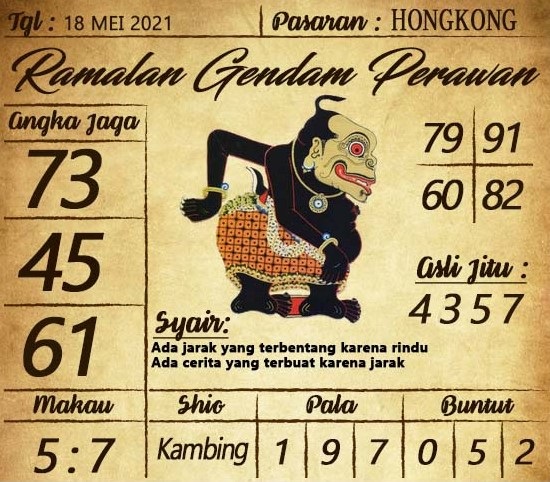 Tgl : 18 MEI 2021
Pasaran : HONGKONG
Ramalan Gendam Perawan
Angka Jaga
73
45
61
79 91
60 82
Asli Jitu :
4357
Syair:
Ada jarak yang terbentang karena rindu
Ada cerita yang terbuat karena jarak
Makau Shio Pala Buntut
5 : 7 Kambing 1 9 7 0 5 2